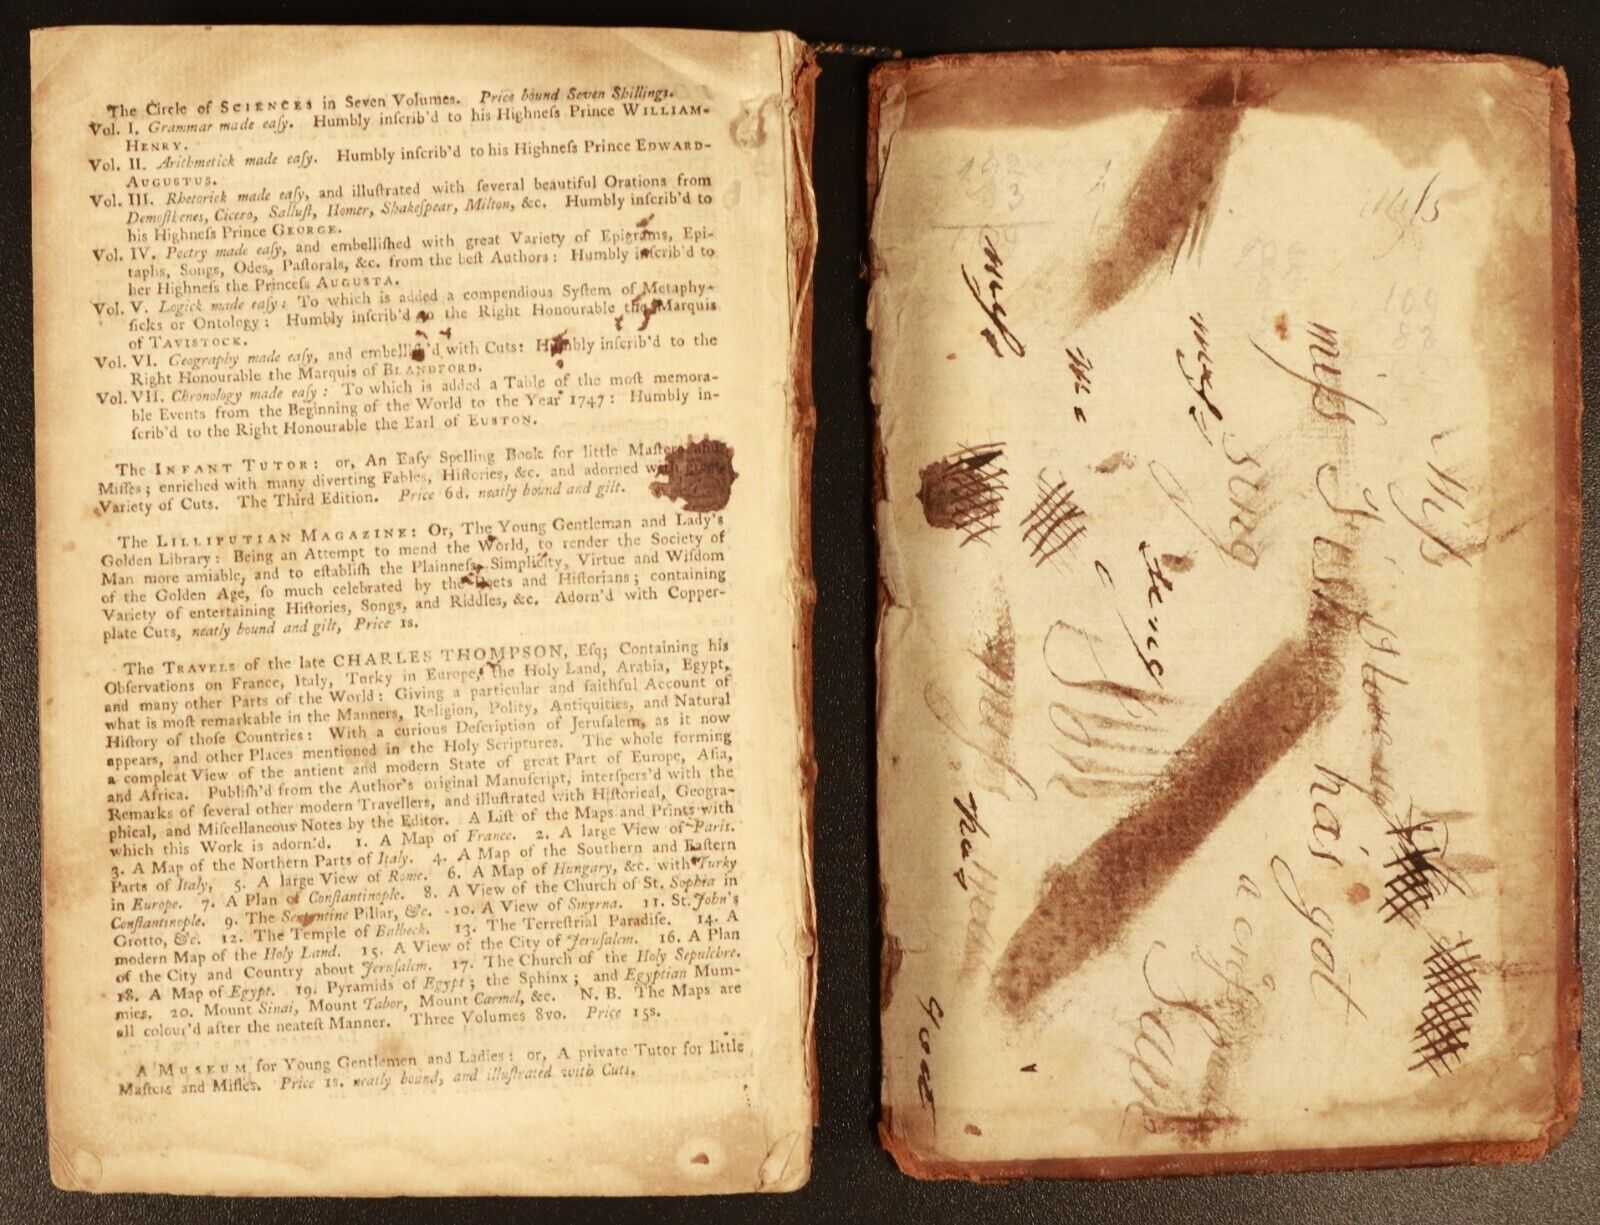 The Circle of SCIENCES in Seven Volumes. Price bound Seven Shillings.
Vol. I. Grammar made eaſy. Humbly inſcrib'd to his Highneſs Prince WILLIAM-
HENRY.
Vol. II. Arithmetick made eaſy. Humbly inſcrib'd to his Highneſs Prince EDWARD-
AUGUSTUS.
Vol. III. Rhetorick made eaſy, and illuſtrated with ſeveral beautiful Orations from
Demoſthenes, Cicero, Salluſt, Homer, Shakeſpear, Milton, &c. Humbly inſcrib'd to
his Highneſs Prince GEORGE.
Vol. IV. Poetry made eaſy, and embelliſhed with great Variety of Epigrams, Epi-
taphs, Songs, Odes, Paſtorals, &c. from the beſt Authors: Humbly inſcrib'd to
her Highneſs the Princeſs AUGUSTA.
Vol. V. Logick made eaſy: To which is added a compendious Syſtem of Metaphy-
ſicks or Ontology: Humbly inſcrib'd to the Right Honourable the Marquis
of TAVISTOCK.
Vol. VI. Geography made eaſy, and embelliſh'd with Cuts: Humbly inſcrib'd to the
Right Honourable the Marquis of BLANDFORD.
Vol. VII. Chronology made eaſy: To which is added a Table of the moſt memora-
ble Events from the Beginning of the World to the Year 1747: Humbly in-
ſcrib'd to the Right Honourable the Earl of EUSTON.
The INFANT TUTOR: or, An Eaſy Spelling Book for little Maſters and
Miſſes; enriched with many diverting Fables, Hiſtories, &c. and adorned with great
Variety of Cuts. The Third Edition. Price 6d. neatly bound and gilt.
The LILLIPUTIAN MAGAZINE: Or, The Young Gentleman and Lady's
Golden Library: Being an Attempt to mend the World, to render the Society of
Man more amiable, and to eſtabliſh the Plainneſs, Simplicity, Virtue and Wiſdom
of the Golden Age, ſo much celebrated by the Poets and Hiſtorians; containing
Variety of entertaining Hiſtories, Songs, and Riddles, &c. Adorn'd with Copper-
plate Cuts, neatly bound and gilt, Price 1s.
The TRAVELS of the late CHARLES THOMPSON, Eſq; Containing his
Obſervations on France, Italy, Turky in Europe, the Holy Land, Arabia, Egypt,
and many other Parts of the World: Giving a particular and faithful Account of
what is moſt remarkable in the Manners, Religion, Polity, Antiquities, and Natural
Hiſtory of thoſe Countries: With a curious Deſcription of Jeruſalem, as it now
appears, and other Places mentioned in the Holy Scriptures. The whole forming
a compleat View of the antient and modern State of great Part of Europe, Aſia,
and Africa. Publiſh'd from the Author's original Manuſcript, interſpers'd with the
Remarks of ſeveral other modern Travellers, and illuſtrated with Hiſtorical, Geogra-
phical, and Miſcellaneous Notes by the Editor. A Liſt of the Maps and Prints with
which this Work is adorn'd. 1. A Map of France. 2. A large View of Paris.
3. A Map of the Northern Parts of Italy. 4. A Map of the Southern and Eaſtern
Parts of Italy, 5. A large View of Rome. 6. A Map of Hungary, &c. with Turky
in Europe. 7. A Plan of Conſtantinople. 8. A View of the Church of St. Sophia in
Conſtantinople. 9. The Serpentine Pillar, &c. 10. A View of Smyrna. 11. St. John's
Grotto, &c. 12. The Temple of Balbeck. 13. The Terreſtrial Paradiſe. 14. A
modern Map of the Holy Land. 15. A View of the City of Jeruſalem. 16. A Plan
of the City and Country about Jeruſalem. 17. The Church of the Holy Sepulchre.
18. A Map of Egypt. 19. Pyramids of Egypt; the Sphinx; and Egyptian Mum-
mies. 20. Mount Sinai, Mount Tabor, Mount Carmel, &c. N. B. The Maps are
all colour'd after the neateſt Manner. Three Volumes 8vo. Price 15s.
A MUSEUM for Young Gentlemen and Ladies: or, A private Tutor for little
Maſters and Miſſes. Price 1s. neatly bound, and illuſtrated with Cuts.
Miſs
miſs has got